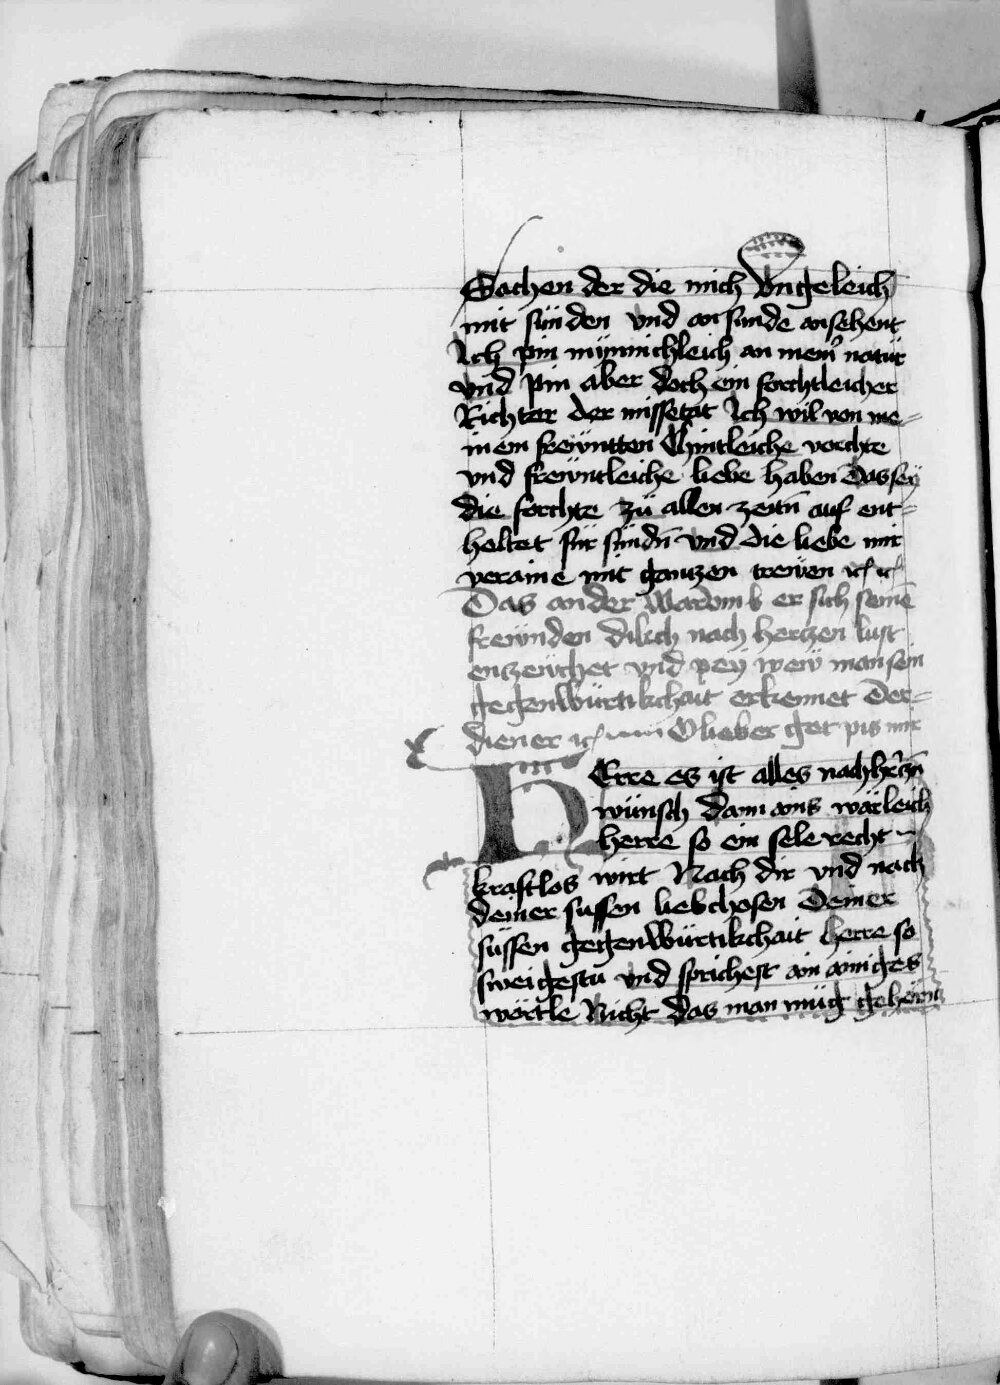 Sachen der die mich Vngeleich
mit sünden vnd on sunde ansehent
Ich pin mynnichleich an mein̄ natür
vnd pin aber doch ein forchtleicher
Richter der missetat Ich wil von me-
inem frewntten Chintleiche vorchte
vnd frewntleiche liebe haben Das sey
die forchte zü allen zeitn̄ auf ent-
heltet für sündn̄ vnd die liebe mir
veraine mit gantzen trewen
Das ander Warvmb er sich seinē
frewnden dikch nach hertzen lust
enzewchet vnd pey wew man sein
gegenWürtikchait erkennet Der-
diener O lieber got pis mir
HErre es ist alles nach hertzn̄
wünsch dann ains wärleich
herre so ein sele recht
kraftlos wirt Nach dir vnd nach
deiner sussen liebchosen Deiner
süssen gegenWürtikchait herre so
sweigestu vnd sprichest ain ainiges
wörtle Nicht das man müg gehörn̄